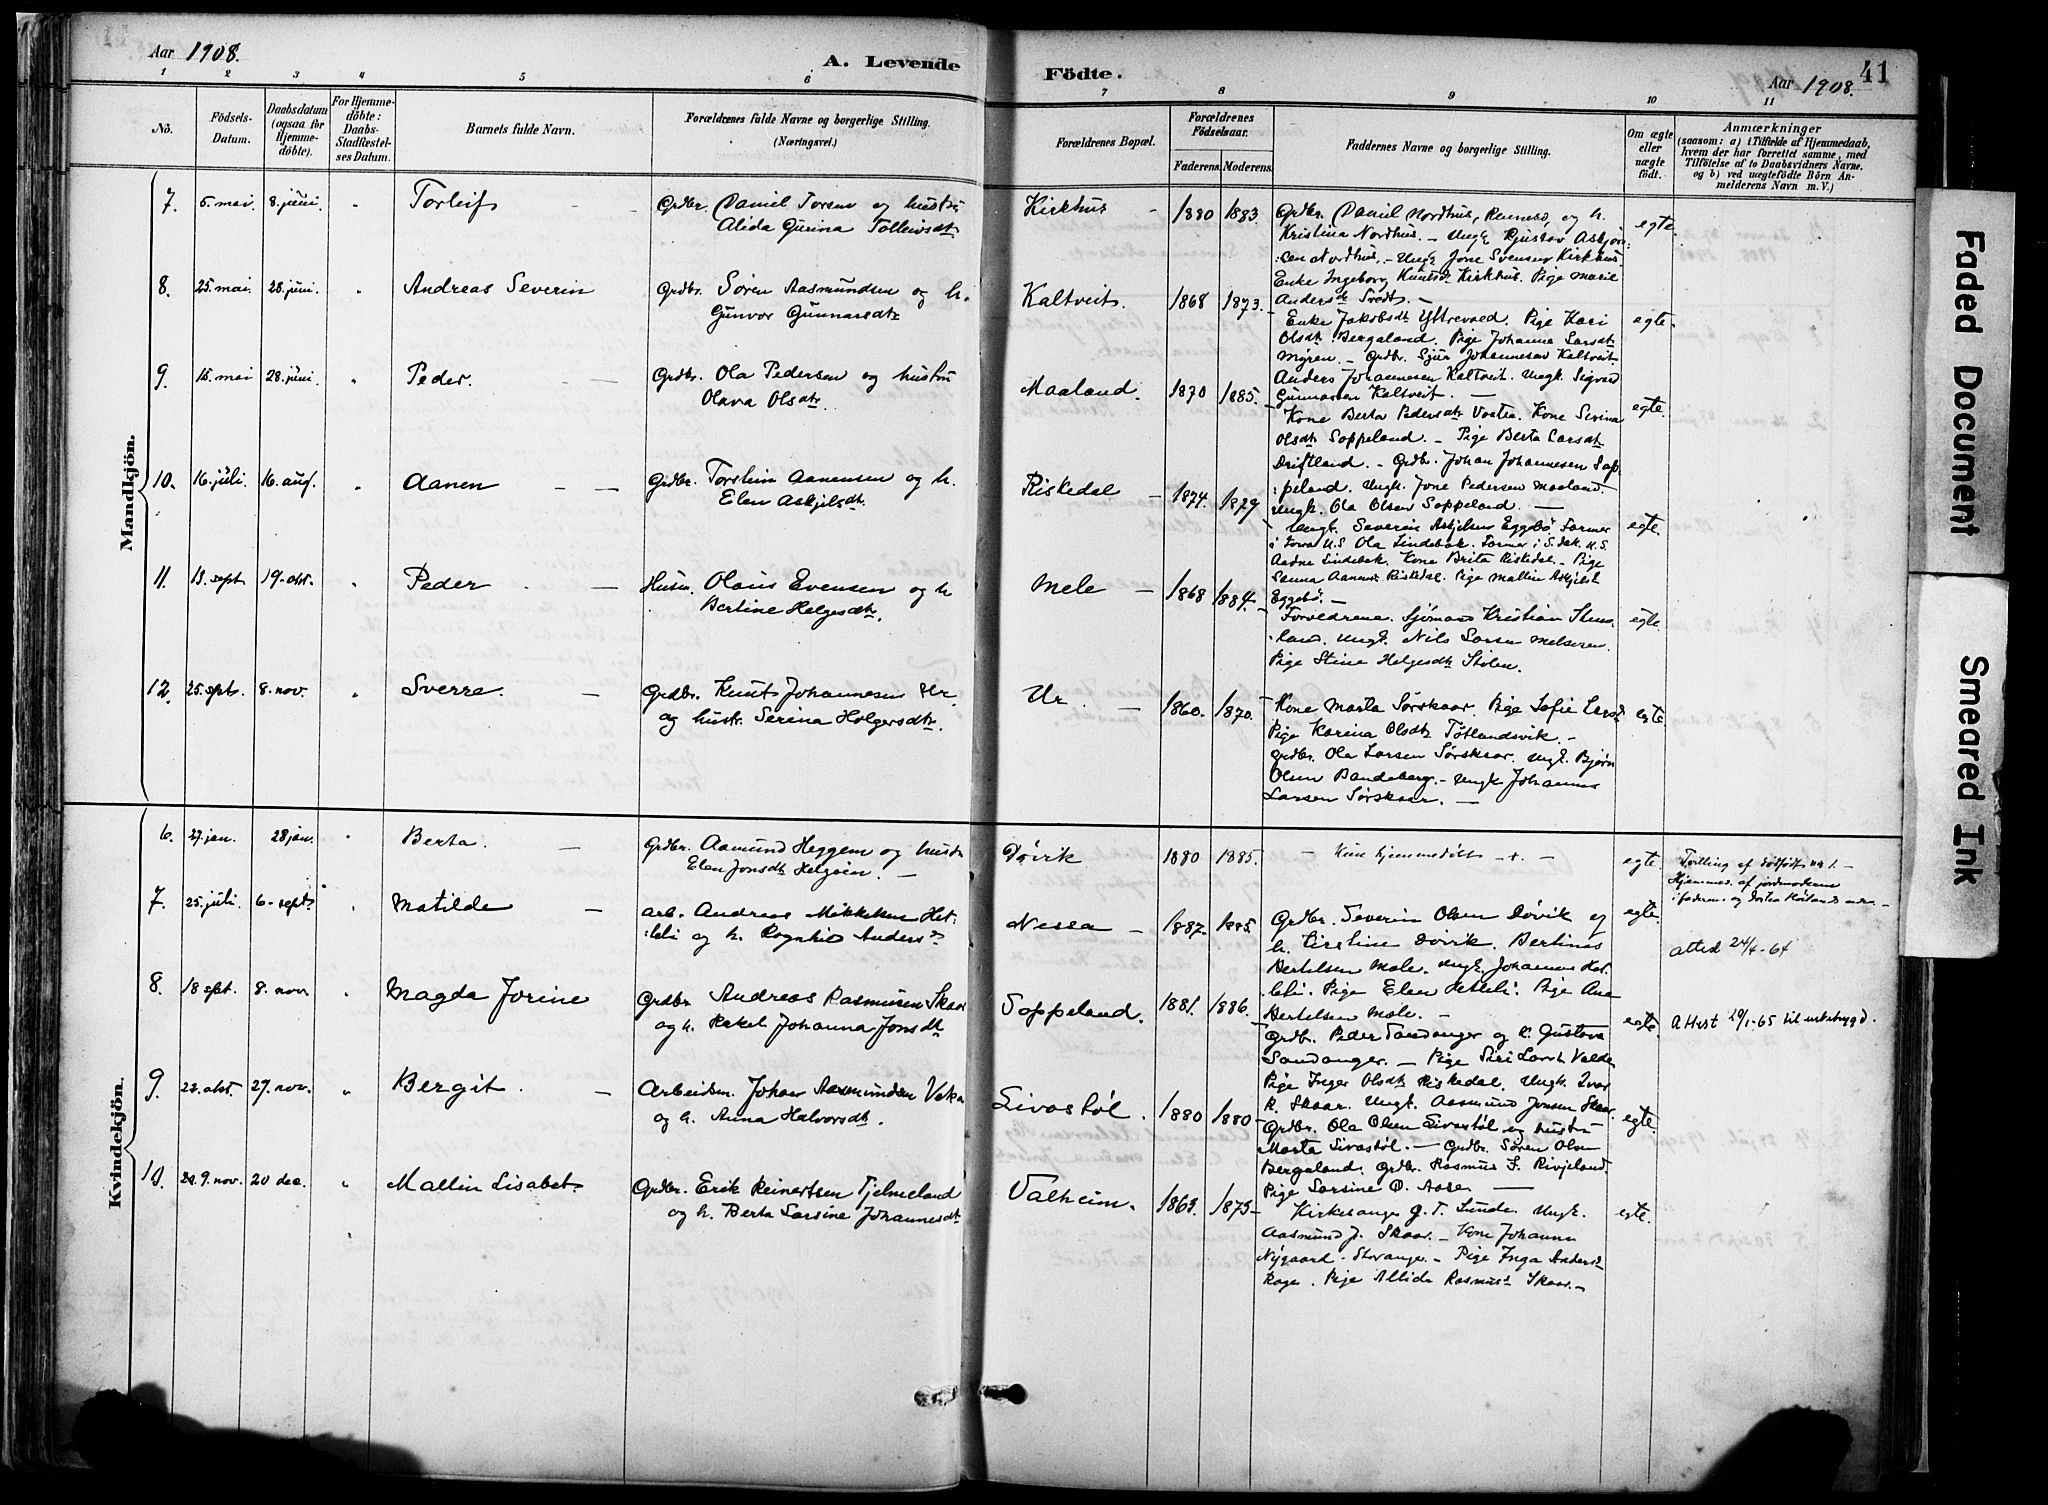 Aar 1908.
A. Levende
Födte.
Aar 1908.
41
1 2 3 4 5 6 7 8 9 10 11
No.
Födsels-
Datum.
Daabsdatum
(ogsaa for
Hjemme-
döbte).
For Hjemme-
döbte:
Daabs-
Stadfæstel-
ses Datum.
Barnets fulde Navn.
Forældrenes fulde Navne og borgerlige Stilling.
(Næringsvei.)
Forældrenes Bopæl.
Forældrenes
Födselsaar.
Faderens. Moderens.
Faddernes Navne og borgerlige Stilling.
Om ægte
eller
uægte
födt.
Anmærkninger
(saasom: a) i Tilfælde af Hjemmedaab,
hvem der har forrettet samme, med
Tilföielse af to Daabsvidners Navne,
og b) ved uægtefödte Börn An-
melderens Navn m. V.)
Mandkjön.
7. 5. mai. 8. juni. " Torleif
Grdbr. Daniel Torsen og hustru
Alida Gurina Tolleivsdtr
Kirkhus 1880 1883.
Grdbr. Daniel Nordhus, Rennesö, og h.
Kristina Nordhus. - Ungk. Gustav Asbjörn-
sen Nordhus. - Ungk. Jone Svensen Kirkhus
Enke Ingeborg Knutsd. Kirkhus. Pige Marie
Andersdt Tvedt. -
egte.
8. 25. mai. 28. juni. " Andreas Severin
Grdbr. Sören Aasmundsen og h.
Gunvor Gunnarsdtr
Kaltveit. 1868 1873.
Enke Jakobsdt Yttrevoed. Pige Kari
Olsdt. Bergaland. Pige Johanna Larsdt
Myren. - Grdbr. Sjur Johannesen Kaltveit
Anders Johannesen Kaltveit. Ungk. Sigvard
Gunnarsen Kaltveit. -
egte.
9. 15. mai 28. juni. " Peder.
Grdbr. Ola Pedersen og hustru
Olava Olsdtr.
Maaland. 1870 1885.
Kone Berta Pedersdtr Vostre. Kone Serina
Olsdt. Soppeland. - Pige Berta Larsdt
Driftland. - Grdbr. Johan Johannesen Sop-
peland. Ungk. Jone Pedersen Maaland.
Ungk. Ola Olsen Soppeland. -
egte.
10. 16. juli. 16. aug. " Aanen
Grdbr. Torstein Aanensen og h.
Elen Askjelsdt.
Riskedal 1874. 1879
Ungk. Severin Askjelsen Eggebö Farmer
i Iowa U.S Ola Lindebak. Farmer i S. Dak. U.S.
Aadne Lindebak. Kone Brita Riskedal. - Pige
Sanna Aanens Riskedal. Pige Mallin Askjelsd
Eggebö. -
egte.
11. 13. sept. 19. okt. " Peder
Husm. Olaus Evensen og h
Bertine Helgesdt.
Mele 1868 1884.
Forældrene. Sjömand Kristian
Ungk. Nils Larsen Melseren.
Pige Stine Helgesdt Stölen.
egte.
12. 25. sept. 8. nov. " Sverre.
Grdbr. Knut Johannesen Ur
og hustr. Serina Holgersdt.
Ur. 1860. 1870.
Kone Marta Sörskaar. Pige Sofie Larsd
Pige Karina Olsdt Tötlandsvik. -
Grdbr. Ola Larsen Sörskaar. Ungk. Björn
Olsen Bandeberg. - Ungk Johannes
Larsen Sörskaar. -
egte
Kvindekjön.
6. 27. jan. 28 jan. " Berta.
Grdbr. Aamund Heggem og hustr
Elen Jonsdt Helgöen. -
Dövik 1880 1885.
- Kun hjemmedöbt - + . -
egte.
Tvilling af dödfödt nr 1. -
Hjemmed. af jordmoderen
7. 25. juli. 6. sept. " Matilde
arb. Andreas Mikkelsen Het-
leli og h. Ragnhild Andersd
Nessa 1887. 1885.
Grdbr. Severin Olsen Dövik og
h. Kirstine Dövik. Bertines
Bertelsen Mæle. Ungk. Johannes Het-
leli. Pige Elen Hetleli. Pige Ane
Bertelsen Mæle. -
egte.
Attest 24/4-64
8. 18 sept. 8. nov. " Magda Jorine
Grdbr Andreas Rasmusen Skaar
og h. Rakel Johanna Jonsdt
Soppeland. 1881. 1886.
Grdbr. Peder Sandanger og h. Gustava
Sandanger. - Pige Siri Larsd. Valde
Pige Inger Olsdt Riskedal. Ungk. Ivar
K. Skaar. Ungk. Aasmund Jonsen Skaar.
egte.
Attest 29/1-65 til enketrygd.
9. 22. okt. 29. nov. " Bergit.
Arbeidsm. Johan Aasmundsen Veka
og h. Anna Halvorsdt.
Livastöl. 1880 1880
Grdbr. Ola Olsen Livastöl og hustru
Marta Livastöl. - Grdbr. Sören Olsen
Bergaland. Grdbr. Rasmus L. Rivjeland.
Pige Sorsine O. Aase
egte.
10. 9. nov. 20 dec. " Mallin Lisabet.
Grdbr. Erik Reinertsen Tjelmeland
og h. Berta Sorsine Johannesdt
Valheim. 1869. 1875
Kirkesanger G. T. Lunde Ungk.
Aasmund J. Skaar. - Kone Johanna
Nygaard - Stavanger. - Pige Inga Andersd
Hage. Pige Allida Rasmusd Skaar. -
egte.
Faded Document
Smeared Ink